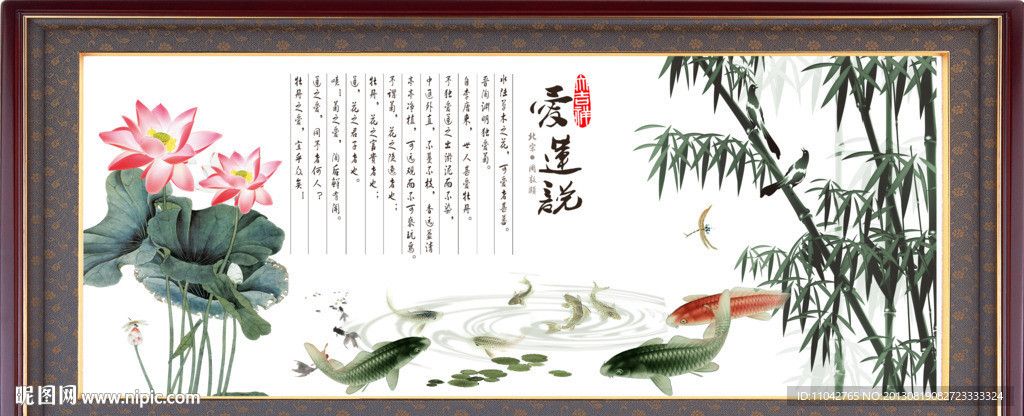 大吉祥
愛蓮說
北宋·周敦頤
水陆草木之花，可爱者甚蕃。
晋陶渊明独爱菊。
自李唐来，世人甚爱牡丹。
予独爱莲之出淤泥而不染，
中通外直，不蔓不枝，香远益清
亭亭净植，可远观而不可亵玩焉。
予谓菊，花之隐逸者也；
牡丹，花之富贵者也；
莲，花之君子者也。
噫！菊之爱，陶后鲜有闻。
莲之爱，同予者何人？
牡丹之爱，宜乎众矣！
昵图网 www.nipic.com
ID:11042765 NO:20130819082723333324